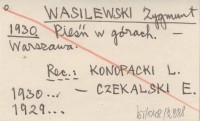 WASILEWSKI Zygmunt
1930 Pieśń w górach. —
Warszawa.
Rec.: KONOPACKI L.
1930... — CZEKALSKI E.
1929...